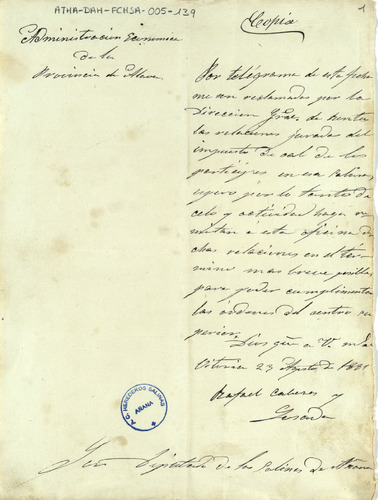 ATHA-DAH-FCHSA-005-139
1
Copia
Administracion Económica
de la
Provincia de Alava
Por telégrama de esta fecha
me son reclamadas por la
Direccion Gral de Rentas
las relaciones juradas del
impuesto de sal de los
partícipes en esa Salinas,
espero por lo tanto de
celo y actividad haga re
mitan á esta oficina di
chas relaciones en el tér
mino mas breve posible,
para poder cumplimentar
las órdenes del centro su
perior.
Dios gue á V. m. a.
Vitoria 23 Agosto de 1881
Rafael Cabezas y
A.G. HEREDEROS SALINAS
AÑANA
Sr. Diputado de las Salinas de Añana